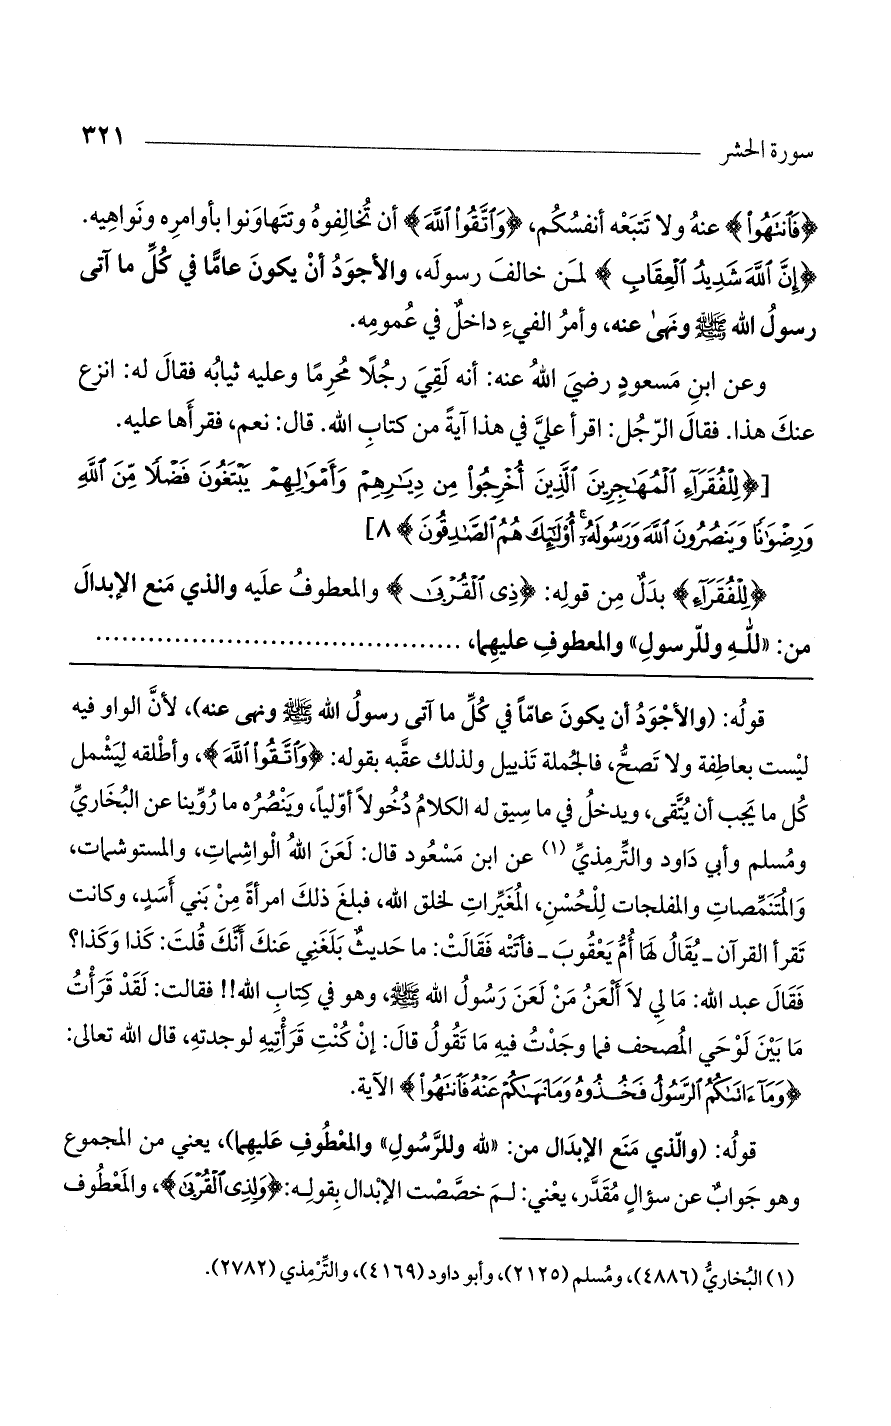 سورة الحشر ٣٢١
﴿فَٱنتَهُواْ﴾ عنهُ ولا تَتبَعْه أنفسُكُم، ﴿وَٱتَّقُواْ ٱللَّهَ﴾ أن تُخالِفوهُ وتتَهاوَنوا بأوامرِه ونَواهِيه.
﴿إِنَّ ٱللَّهَ شَدِيدُ ٱلْعِقَابِ﴾ لمَن خالفَ رسولَه، والأجوَدُ أنْ يكونَ عامًّا في كُلِّ ما آتى
رسولُ الله ﷺ ونَهىٰ عنه، وأمرُ الفيءِ داخلٌ في عُمومِه.
وعن ابنِ مَسعودٍ رضيَ اللهُ عنه: أنه لَقِيَ رجُلًا مُحرِمًا وعليه ثيابُه فقالَ له: انزع
عنكَ هذا. فقالَ الرّجُل: اقرأ عليَّ في هذا آيةً من كتابِ الله. قال: نعم، فقرأَها عليه.
[﴿لِلْفُقَرَآءِ ٱلْمُهَٰجِرِينَ ٱلَّذِينَ أُخْرِجُواْ مِن دِيَٰرِهِمْ وَأَمْوَٰلِهِمْ يَبْتَغُونَ فَضْلًا مِّنَ ٱللَّهِ
وَرِضْوَٰنًا وَيَنصُرُونَ ٱللَّهَ وَرَسُولَهُۥٓ ۚ أُوْلَٰٓئِكَ هُمُ ٱلصَّٰدِقُونَ﴾ ٨]
﴿لِلْفُقَرَآءِ﴾ بدَلٌ مِن قولِه: ﴿ذِى ٱلْقُرْبَىٰ﴾ والمعطوفُ علَيه والذي مَنع الإبدالَ
من: «للَّهِ وللّرسولِ» والمعطوفِ عليهِما، ..........................................
قولُه: (والأجْوَدُ أن يكونَ عامّاً في كُلِّ ما آتى رسولُ الله ﷺ ونهى عنه)، لأنَّ الواو فيه
ليْست بعاطِفة ولا تَصحُّ، فالجُملة تَذييل ولذلك عقَّبه بقوله: ﴿وَٱتَّقُواْ ٱللَّهَ﴾، وأطْلقه لِيَشْمل
كُل ما يَجب أن يُتَّقى، ويدخلُ في ما سِيق له الكلامُ دُخُولاً أوّلياً، ويَنْصُرُه ما رُوِّينا عن البُخَاريِّ
ومُسلم وأبي دَاود والتِّرمذيِّ (١) عن ابن مَسْعُود قال: لَعَنَ اللهُ الْواشِماتِ، والمستوشمات،
وَالمُتَنَمِّصاتِ والمفلجات لِلْحُسْنِ، المُغَيِّراتِ لخلق الله، فبلغَ ذلكَ امرأةً مِنْ بَني أَسَدٍ، وكانت
تَقرأ القرآن ـ يُقَالُ لهَا أُمُّ يَعْقُوبَ ـ فأتَتْه فَقَالَتْ: ما حَديثٌ بَلَغَني عَنكَ أنَّكَ قُلتَ: كَذا وَكَذا؟
فَقَالَ عبد الله: مَا لِي لاَ أَلْعَنُ مَنْ لَعَنَ رَسُولُ الله ﷺ، وهو في كِتابِ الله!! فقالت: لَقَدْ قَرَأْتُ
مَا بَيْنَ لَوْحَي المُصحف فما وجَدْتُ فيهِ مَا تَقُولُ قالَ: إنْ كُنْتِ قَرَأْتِيهِ لوجدتِهِ، قال الله تعالى:
﴿وَمَآ ءَاتَىٰكُمُ ٱلرَّسُولُ فَخُذُوهُ وَمَا نَهَىٰكُمْ عَنْهُ فَٱنتَهُواْ﴾ الآية.
قولُه: (والّذي مَنَع الإبدَال من: «لله وللرَّسُولِ» والمعْطُوفِ عَليهِما)، يعني من المجموع
وهو جَوابٌ عن سؤالٍ مُقدَّر، يعْني: لـمَ خصَّصْت الإبْدال بِقولِـه: ﴿وَلِذِى ٱلْقُرْبَىٰ﴾، والمَعْطُوف
(١) البُخاريُّ (٤٨٨٦)، ومُسلم (٢١٢٥)، وأبو داود (٤١٦٩)، والتِّرْمذي (٢٧٨٢).